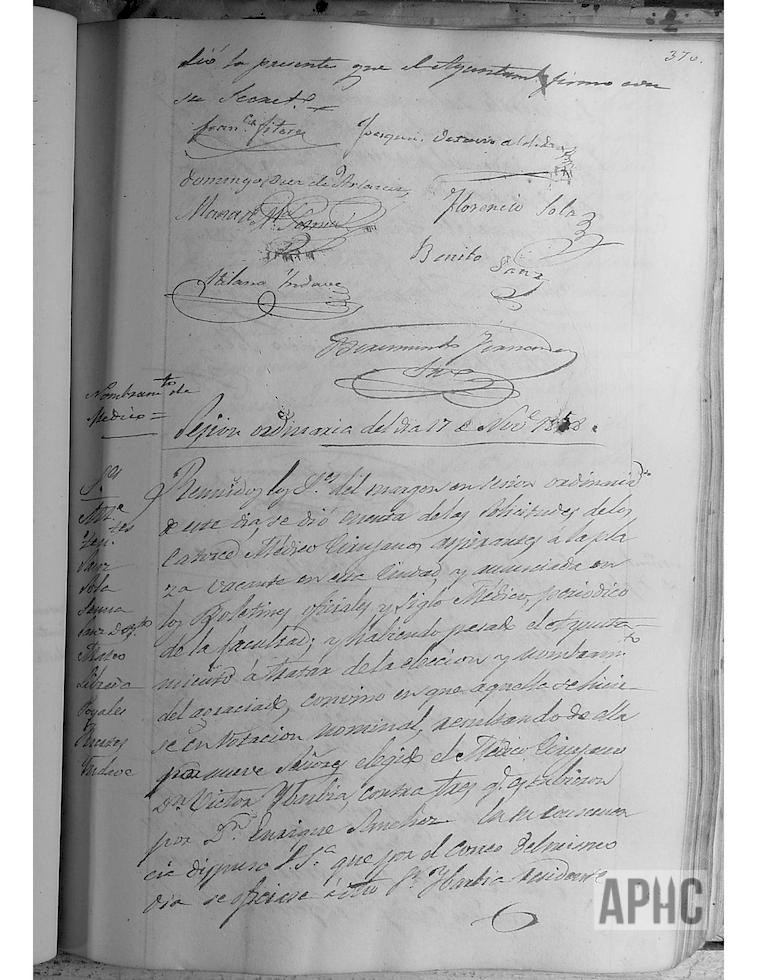 370.
dió la presente que el Ayuntam.to firmo con
su Secret.o
Fran.co Pitera
Domingo Diez de
Florencio Sola
Manuel M.a
Benito Sanz
Yndave
Bienvenido
Nombram.to de
Medico =
Sesion ordinaria del dia 17 de Nov.e 1858.
S.res
Alc.e
Ten.tes
Sanz
Sola
Serna
Sanz D. Bt.o
Mateo
Libreria
Poyales
Puertas
Yndave
Reunidos los S.res del margen en sesion ordinaria
de este dia se dió cuenta de las solicitudes de los
catorce Médico Cirujanos aspirantes á la pla
za vacante en esta Ciudad, y anunciada en
los Boletines oficiales y Siglo Médico, periodico
de la facultad; y habiendo pasado el Ayunta-
miento á tratar de la eleccion y nombram.to
del agraciado, convino en que aquella se hicie-
se en votacion nominal, resultando de ella
por nueve Señores elegido el Medico Cirujano
Dn. Victor Ybarbia, contra tres q.e
por D.n Enrique Sanchez. En su consecuen
cia dispuso S. S.a que por el correo del mismo
dia se oficiase á dho S.r Ybarbia residente
APHC